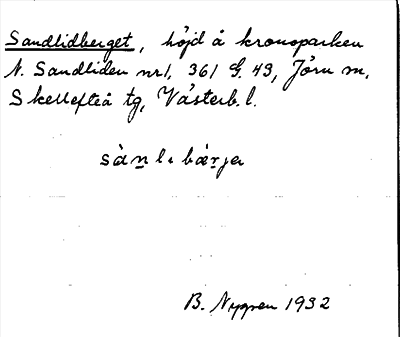 Sandlidberget, höjd å kronoparken
N. Sandliden nr 1, 361 G. 43, Jörn m,
Skellefteå tg, Västerb. l.
sàn̲lıbæ̀r̲jə
B. Nygren 1932